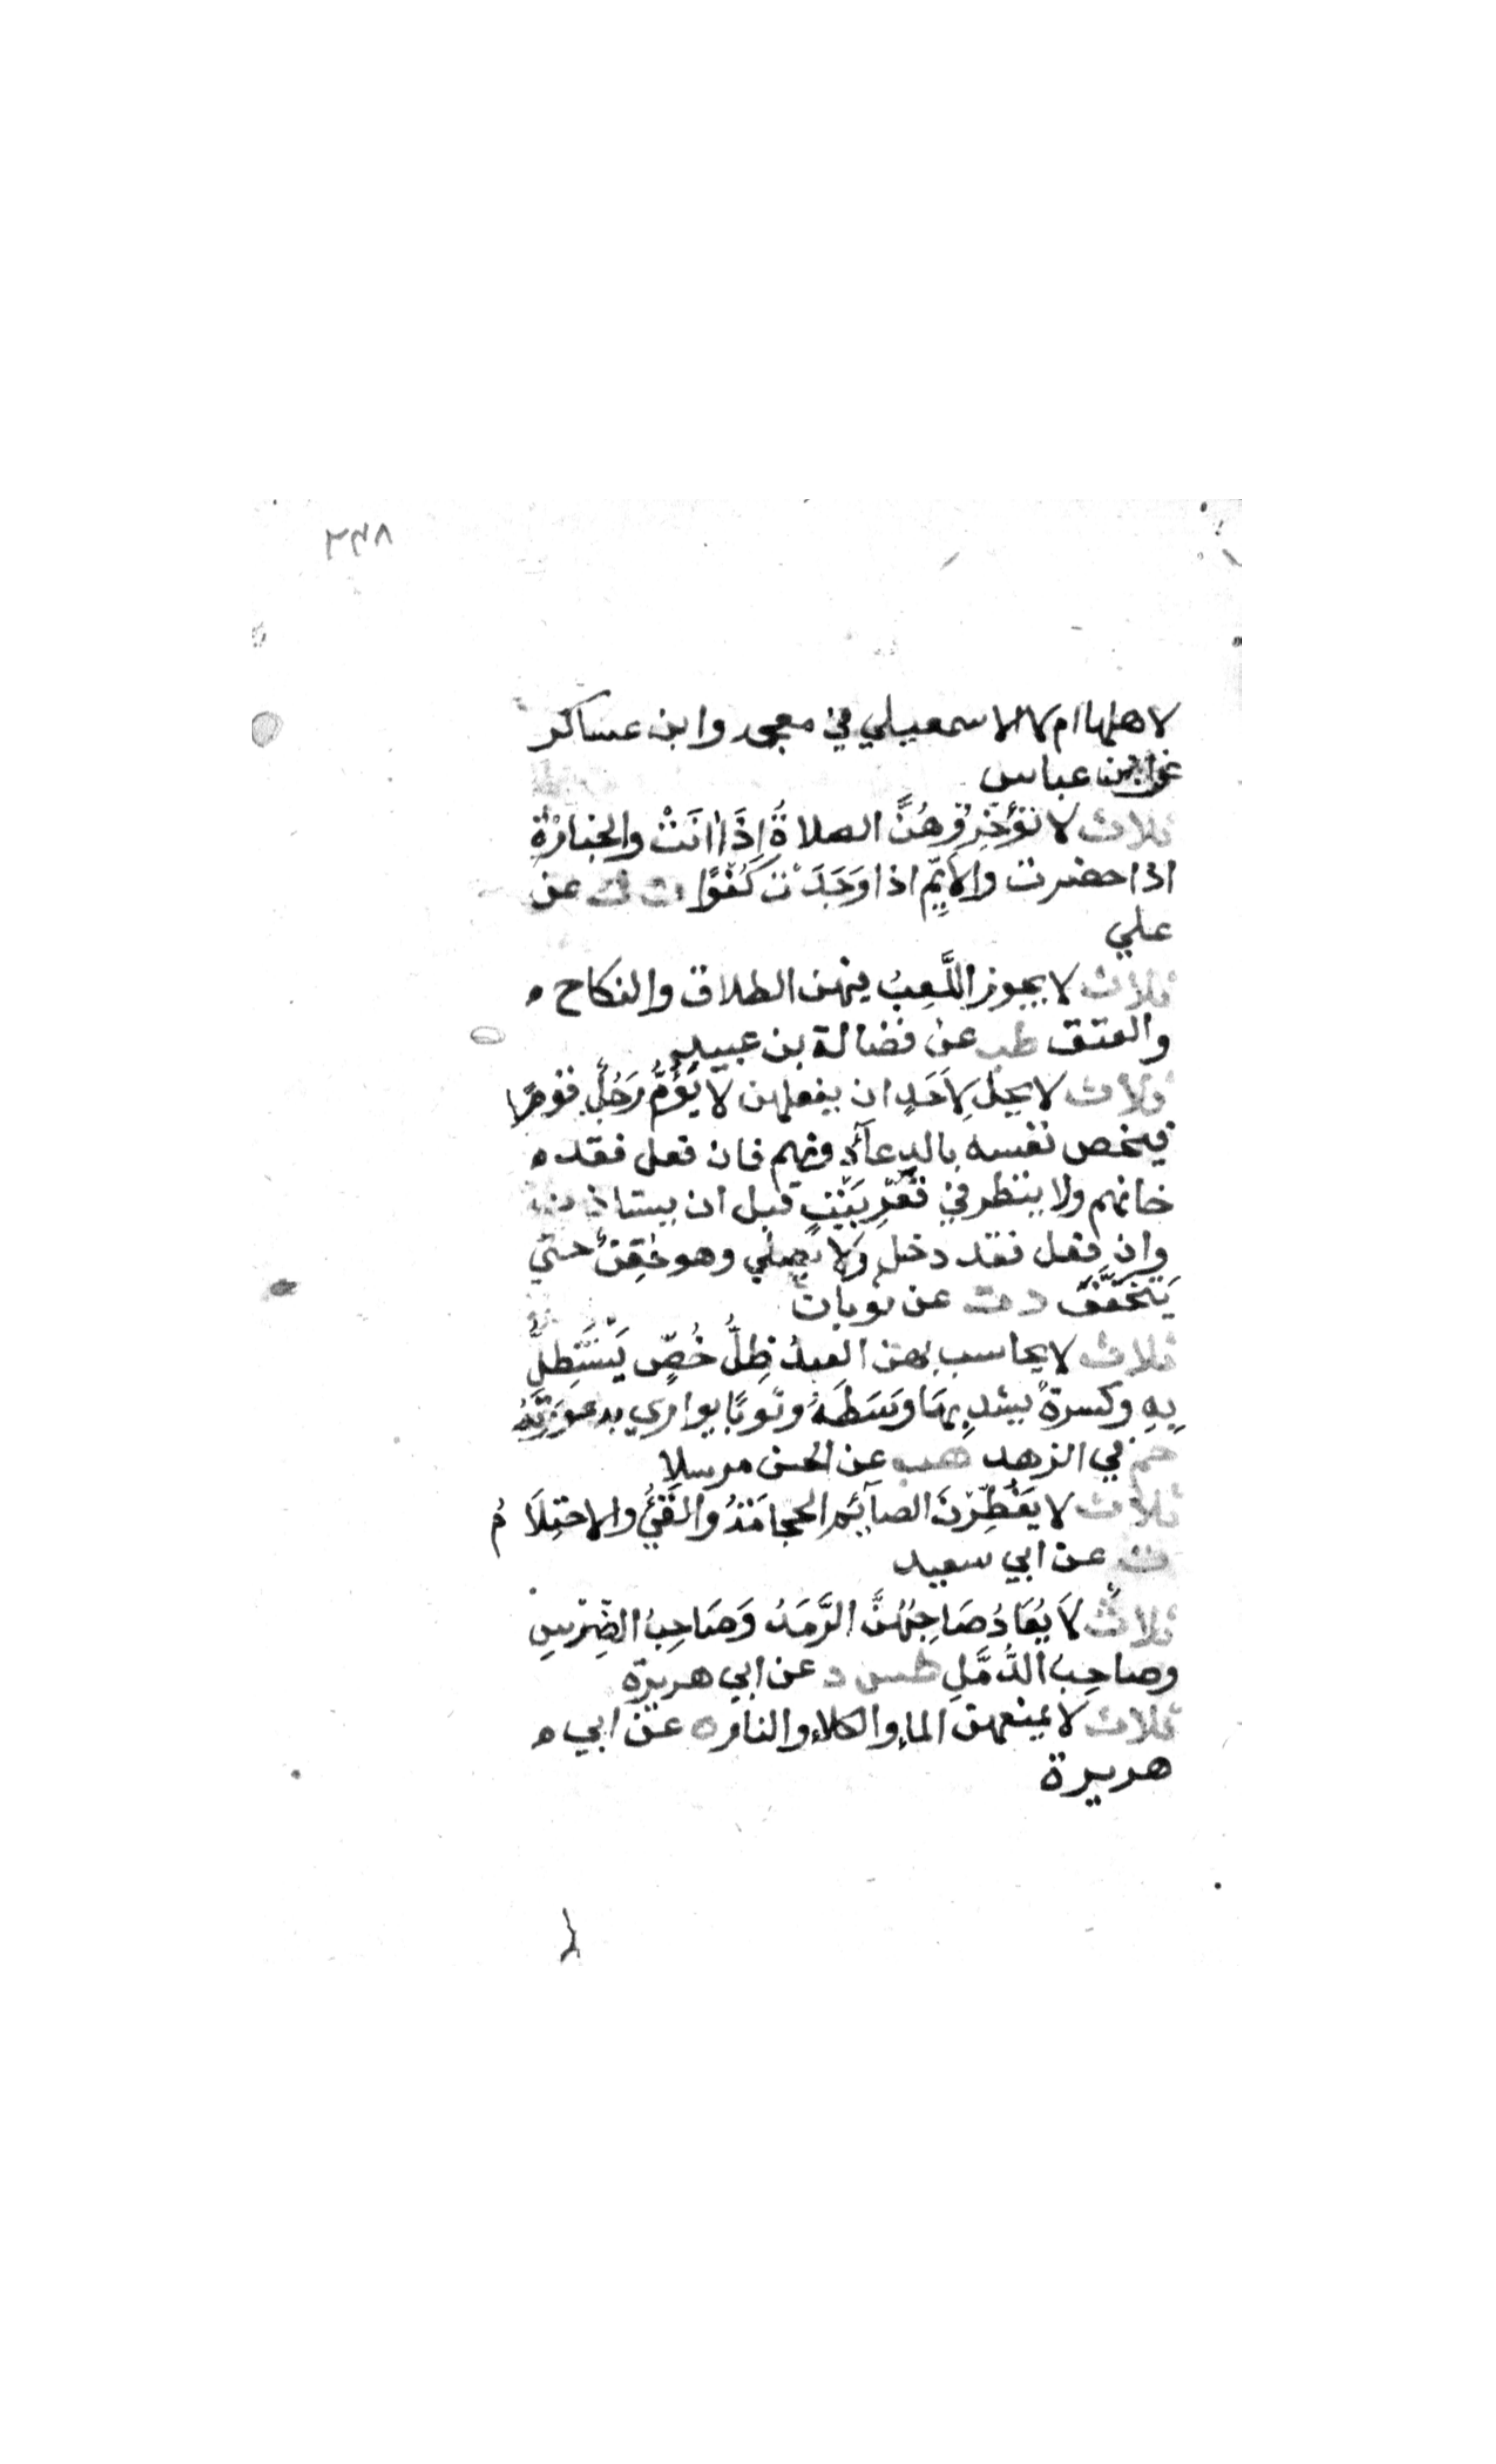 ٢٣٨
لاهلها ام لا الاسمعيلي في معجمه وابن عساكر
عن ابن عباس
ثلاث لا تؤَخِّرْوهُنَّ الصلاةُ اِذَا اتَتْ والجنازةُ
اذا حضرت والاَيِّم اذا وَجَدَتْ كُفْوًا ت ك عن
علي
ثلاث لا يجوز اللَّعِبُ فيهن الطلاق والنكاح ه
والعتق طب عن فضالة بن عبيد
ثلاث لا يحل لِاَحَدٍ ان يفعلهن لا يَؤُمُّ رَجُلٌ قومًا
فيخص نفسه بالدعآء دونهم فان فعل فقد ه
خانهم ولا ينظر في قَعْرِ بَيْتٍ قبل ان يستاذن
وان فعل فقد دخل ولا يصلي وهو حَقِنٌ حتي
يَتَخَفَّفَ د ت عن ثوبان
ثلاث لا يحاسب بهن العبدُ ظِلُّ خُصٍّ يَسْتَظِلُّ
بِهِ وكسرةٌ يشد بِهَا وَسَطَهُ وثوبًا يواري به عورَتَهُ
حم في الزهد هب عن الحسن مرسلا
ثلاث لا يَفْطِّرْنَ الصآئم الحجامَةُ والقَيْءُ والاحتِلَامُ
ت عن ابي سعيد
ثلاثٌ لاَ يُعَادُ صَاحِبُهُنَّ الرَّمَدُ وَصَاحِبُ الضِّرْسِ
وصاحِبُ الدُّمَّلِ طس د عن ابي هريرة
ثلاث لا يمنعهن الماء والكلاء والنار ه عن ابي ه
هريرة